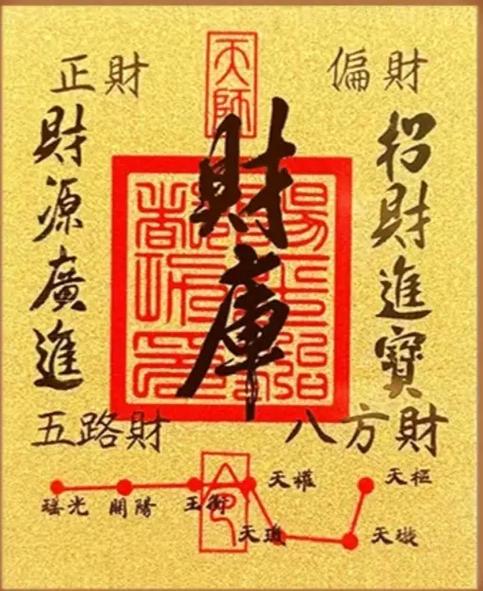 天師
正財
偏財
財源廣進
財庫
招財進寶
五路財
八方財
瑤光
開陽
玉衡
天權
天璣
天璇
天樞
命